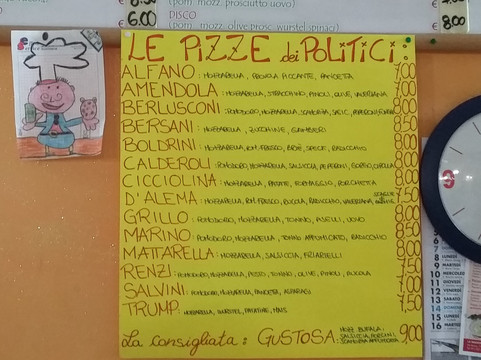 6.00
DISCO
8.00
LE PIZZE dei POLITICI:
ALFANO: MOZZARELLA, PROVOLA PICCANTE, PANCETTA 7,00
AMENDOLA: MOZZARELLA, STRACCHINO, PINOLI, OLIVE, VALERIANA
BERLUSCONI: POMODORO, MOZZARELLA, 8,00
BERSANI: MOZZARELLA, ZUCCHINE, GAMBERI
BOLDRINI: MOZZARELLA, POM. FRESCO, BRIE, SPECK, RADICCHIO
CALDEROLI: POMODORO, MOZZARELLA, SALSICCIA, PEPERONI, CIPOLLA
CICCIOLINA: MOZZARELLA, PATATE, FORMAGGIO, PORCHETTA 8,00
D'ALEMA: MOZZARELLA, POM. FRESCO, RUCOLA, RADICCHIO, VALERIANA 7,50
GRILLO: POMODORO, MOZZARELLA, TONNO, PISELLI, UOVO 8,00
MARINO: POMODORO, MOZZARELLA, TONNO AFFUMICATO, RADICCHIO 8,50
MATTARELLA: MOZZARELLA, SALSICCIA, FRIARIELLI 8,00
RENZI: POMODORO, MOZZARELLA, PESTO, TONNO, OLIVE, PINOLI, RUCOLA 7,50
SALVINI: POMODORO, MOZZARELLA, PANCETTA, ASPARAGI 7,00
TRUMP: MOZZARELLA, WURSTEL, PATATINE, MAIS 7,50
La consigliata: GUSTOSA: MOZZ. BUFALA, SALSICCIA, PORCINI, 9,00